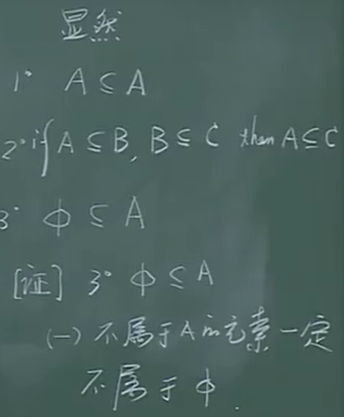 显然
1° A ⊆ A
2° if A ⊆ B, B ⊆ C then A ⊆ C
3° ϕ ⊆ A
[证] 3° ϕ ⊆ A
(一) 不属于A的元素一定
不属于ϕ.